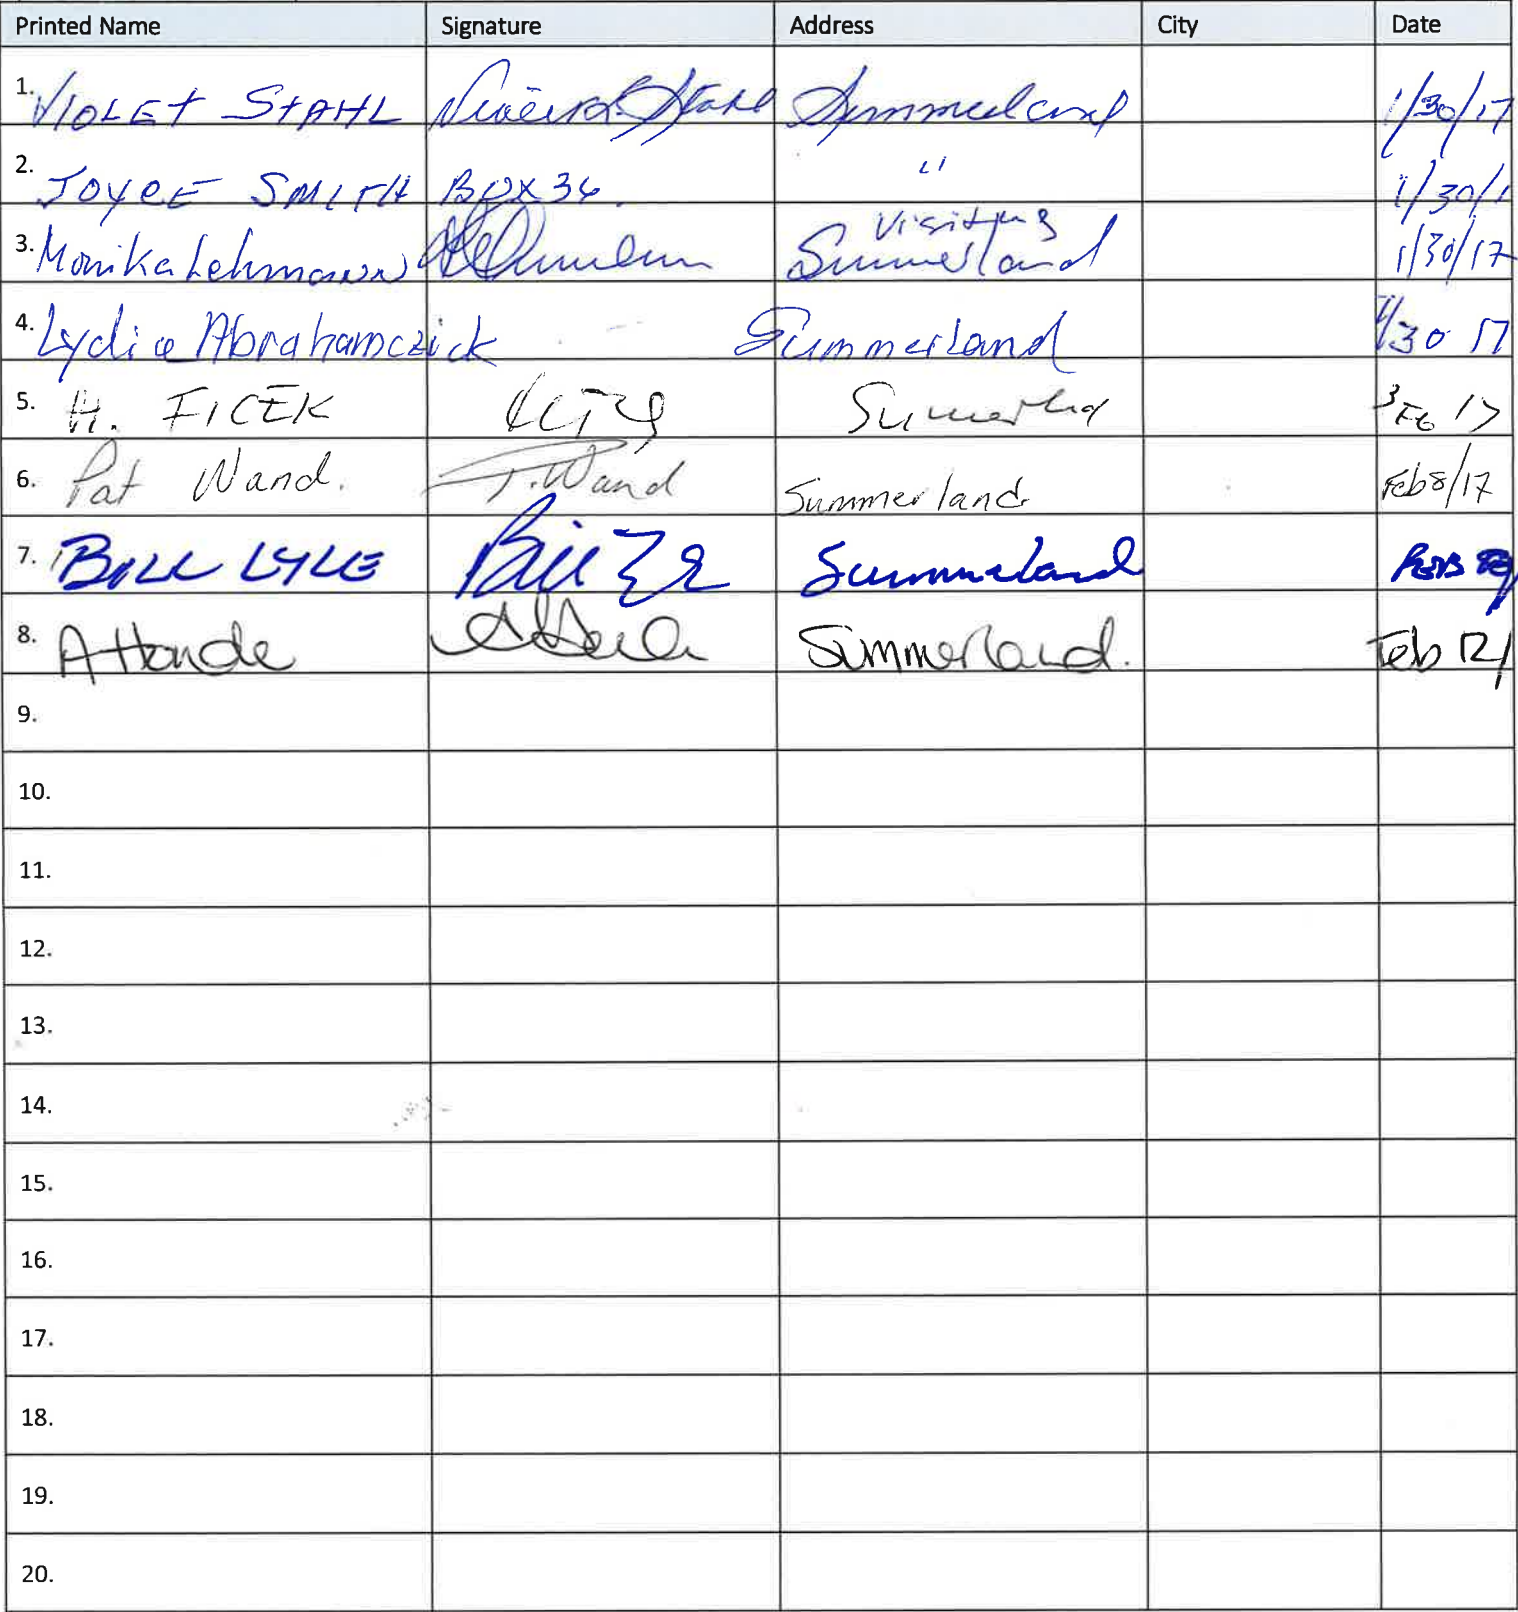 Printed Name Signature Address City Date
1. VIOLET STAHL Stahl Summerland 1/30/17
2. JOYCE SMITH BOX 36. " 1/30/1
Visiting
3. Monika Lehmann Summerland 1/30/17
4. Lydia Abrahamczick Summerland 1/30 17
5. H. FICEK Summerland 3 Feb 17
6. Pat Wand. P. Wand Summerland. Feb 8/17
7. BILL LYLE Bill Summerland FEB
8. A Hande Summerland. Feb 12/
9.
10.
11.
12.
13.
14.
15.
16.
17.
18.
19.
20.